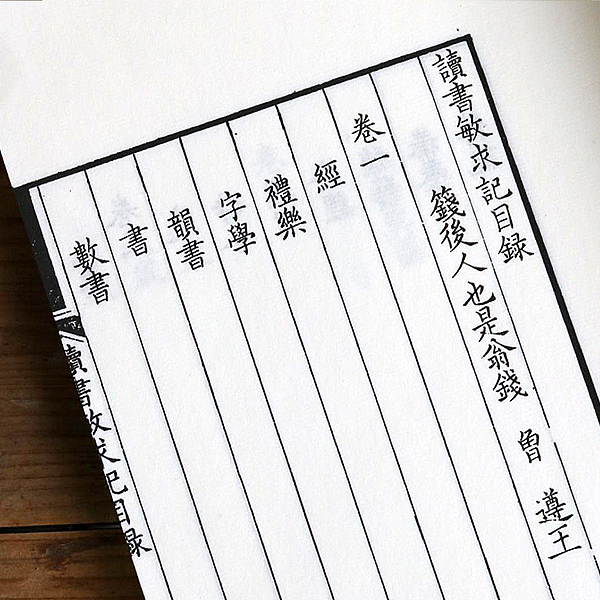 讀書敏求記目録
籛後人也是翁錢 曾 遵王
卷一
經
禮樂
字學
韻書
書
數書
讀書敏求記目録